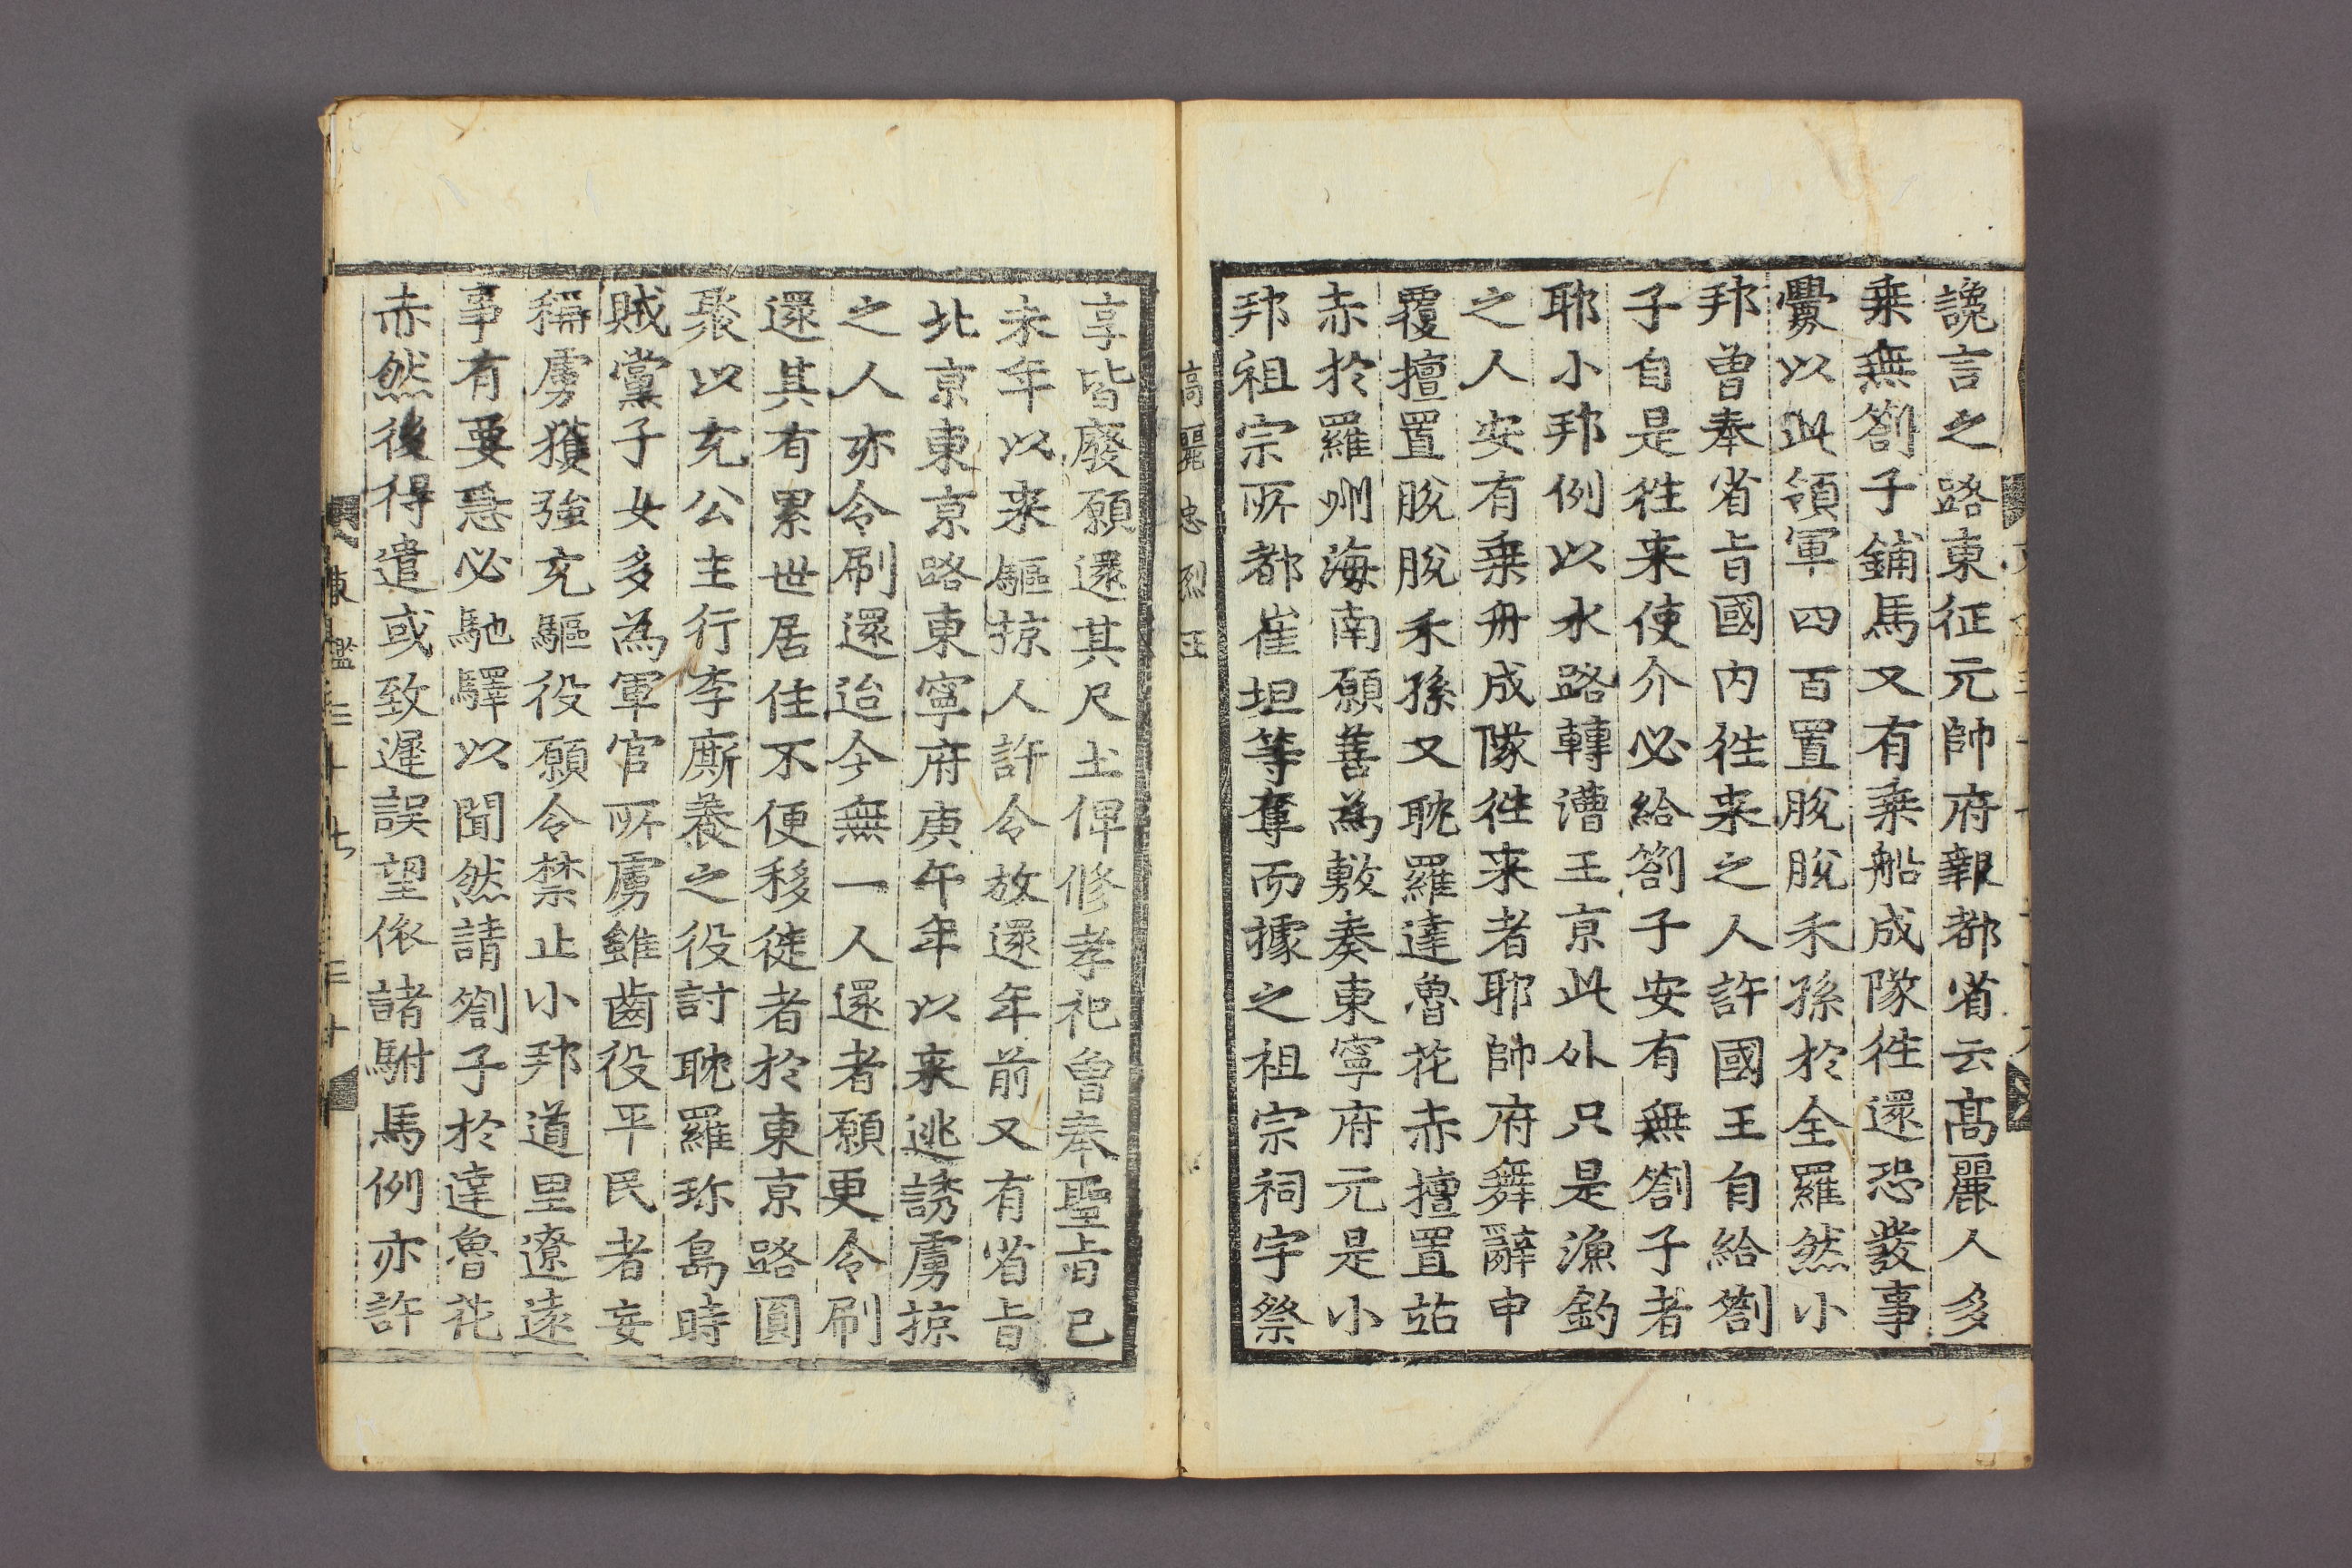 讒言之路東征元帥府報都省云髙麗人多
乗無劄子鋪馬又有乗船成隊徃還恐發事
釁以此領軍四百置脫脫禾孫於全羅然小
邦曽奉省旨國内徃来之人許國王自給劄
子自是徃来使介必給劄子安有無劄子者
耶小邦例以水路轉漕王京此外只是漁釣
之人安有乗舟成隊徃来者耶帥府舞辭申
覆擅置脫脫禾孫又耽羅達魯花赤擅置站
赤於羅州海南願善為敷奏東寧府元是小
邦祖宗所都崔坦等奪而據之祖宗祠宇祭
髙麗忠烈王
享皆廢願還其尺土俾修孝祀曽奉聖旨已
未年以来驅掠人許令放還年前又有省旨
北京東京路東寧府庚午年以来逃誘虜掠
之人亦令刷還迨今無一人還者願更令刷
還其有累世居住不便移徙者於東京路圓
聚以充公主行李廝養之役討耽羅珎島時
賊黨子女多為軍官所虜雖齒役平民者妄
稱虜獲強充驅役願令禁止小邦道里遼遠
事有要急必馳驛以聞然請劄子於達魯花
赤然後得遣或致遲誤望依諸駙馬例亦許
東鑑三十七 三十